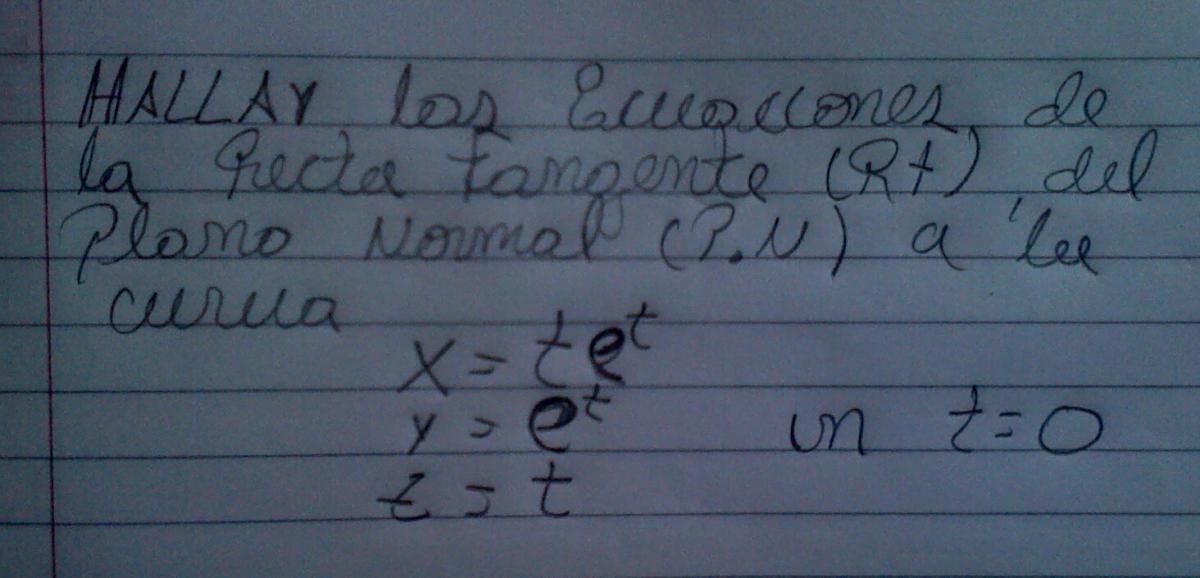 HALLAR las Ecuaciones de
la Recta tangente (Rt), del
Plano Normal (P.N) a la
curva
x = te^t
y = e^t en t=0
z = t